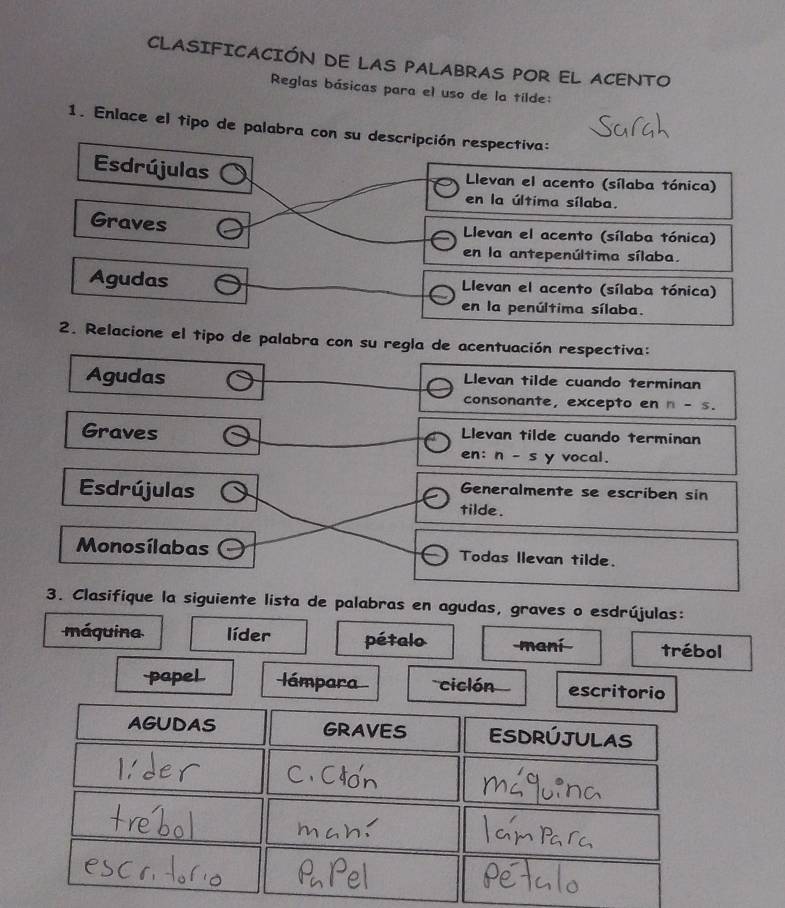 CLASIFICACIÓN DE LAS PALABRAS POR EL ACENTO
Reglas básicas para el uso de la tilde:
Sarah
1. Enlace el tipo de palabra con su descripción respectiva:
Esdrújulas
Llevan el acento (sílaba tónica)
en la última sílaba.
Graves
Llevan el acento (sílaba tónica)
en la antepenúltima sílaba.
Agudas
Llevan el acento (sílaba tónica)
en la penúltima sílaba.
2. Relacione el tipo de palabra con su regla de acentuación respectiva:
Agudas
Llevan tilde cuando terminan
consonante, excepto en n - s.
Graves
Llevan tilde cuando terminan
en: n - s y vocal.
Esdrújulas
Generalmente se escriben sin
tilde.
Monosílabas
Todas llevan tilde.
3. Clasifique la siguiente lista de palabras en agudas, graves o esdrújulas:
máquina líder pétalo maní trébol
papel lámpara ciclón escritorio
AGUDAS GRAVES ESDRÚJULAS
líder ciclón máquina
trébol maní lámpara
escritorio papel pétalo